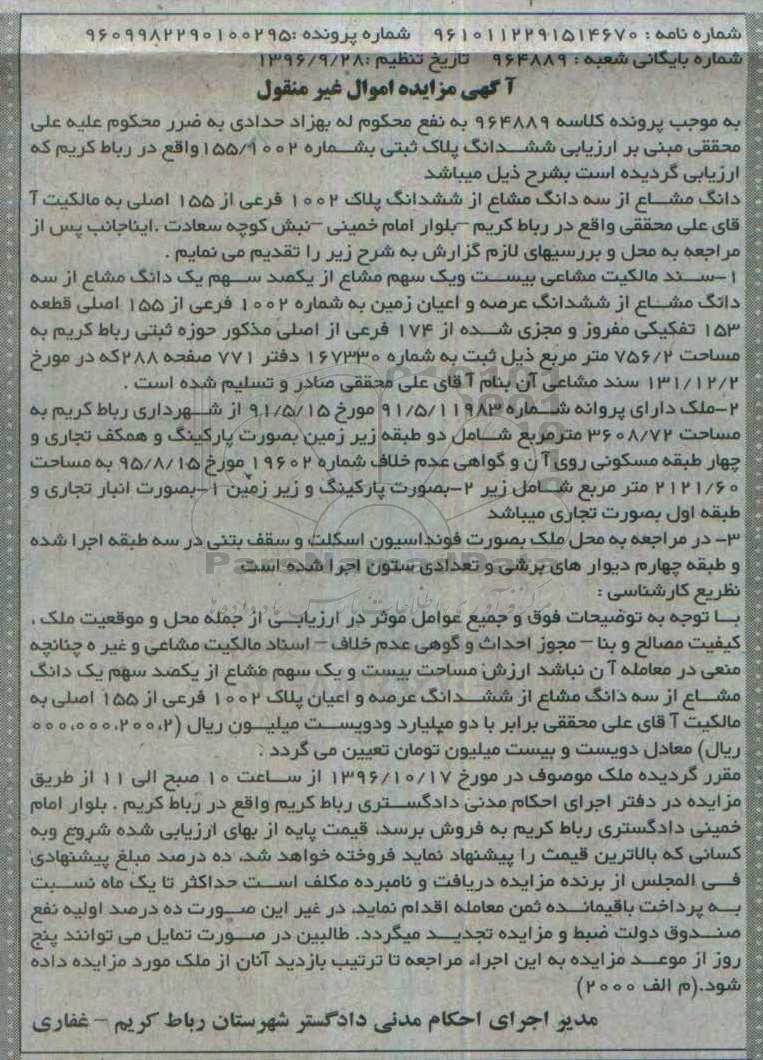 شماره نامه : ۹۶۱۰۱۱۲۲۹۱۵۱۴۶۷۰ شماره پرونده :۹۶۰۹۹۸۲۲۹۰۱۰۰۲۹۵
شماره بایگانی شعبه : ۹۶۴۸۸۹ تاریخ تنظیم :۱۳۹۶/۹/۲۸
آگهی مزایده اموال غیر منقول
به موجب پرونده کلاسه ۹۶۴۸۸۹ به نفع محکوم له بهزاد حدادی به ضرر محکوم علیه علی
محققی مبنی بر ارزیابی ششدانگ پلاک ثبتی بشماره ۱۵۵/۱۰۰۲واقع در رباط کریم که
ارزیابی گردیده است بشرح ذیل میباشد
دانگ مشاع از سه دانگ مشاع از ششدانگ پلاک ۱۰۰۲ فرعی از ۱۵۵ اصلی به مالکیت آ
قای علی محققی واقع در رباط کریم –بلوار امام خمینی –نبش کوچه سعادت .ایناجانب پس از
مراجعه به محل و بررسیهای لازم گزارش به شرح زیر را تقدیم می نمایم .
۱–سند مالکیت مشاعی بیست ویک سهم مشاع از یکصد سهم یک دانگ مشاع از سه
دانگ مشاع از ششدانگ عرصه و اعیان زمین به شماره ۱۰۰۲ فرعی از ۱۵۵ اصلی قطعه
۱۵۳ تفکیکی مفروز و مجزی شده از ۱۷۴ فرعی از اصلی مذکور حوزه ثبتی رباط کریم به
مساحت ۷۵۶/۲ متر مربع ذیل ثبت به شماره ۱۶۷۳۳۰ دفتر ۷۷۱ صفحه ۲۸۸که در مورخ
۱۳۱/۱۲/۲ سند مشاعی آن بنام آ قای علی محققی صادر و تسلیم شده است .
۲–ملک دارای پروانه شماره ۹۱/۵/۱۱۹۸۳ مورخ ۹۱/۵/۱۵ از شهرداری رباط کریم به
مساحت ۳۶۰۸/۷۲ مترمربع شامل دو طبقه زیر زمین بصورت پارکینگ و همکف تجاری و
چهار طبقه مسکونی روی آ ن و گواهی عدم خلاف شماره ۱۹۶۰۲ مورخ ۹۵/۸/۱۵ به مساحت
۲۱۲۱/۶۰ متر مربع شامل زیر ۲–بصورت پارکینگ و زیر زمین ۱–بصورت انبار تجاری و
طبقه اول بصورت تجاری میباشد
۳– در مراجعه به محل ملک بصورت فونداسیون اسکلت و سقف بتنی در سه طبقه اجرا شده
و طبقه چهارم دیوار های برشی و تعدادی ستون اجرا شده است
نظریع کارشناسی :
با توجه به توضیحات فوق و جمیع عوامل موثر در ارزیابی از جمله محل و موقعیت ملک ،
کیفیت مصالح و بنا – مجوز احداث و گوهی عدم خلاف – اسناد مالکیت مشاعی و غیر ه چنانچه
منعی در معامله آ ن نباشد ارزش مساحت بیست و یک سهم مشاع از یکصد سهم یک دانگ
مشاع از سه دانگ مشاع از ششدانگ عرصه و اعیان پلاک ۱۰۰۲ فرعی از ۱۵۵ اصلی به
مالکیت آ قای علی محققی برابر با دو میلیارد ودویست میلیون ریال (۲،۲۰۰،۰۰۰،۰۰۰
ریال) معادل دویست و بیست میلیون تومان تعیین می گردد .
مقرر گردیده ملک موصوف در مورخ ۱۳۹۶/۱۰/۱۷ از ساعت ۱۰ صبح الی ۱۱ از طریق
مزایده در دفتر اجرای احکام مدنی دادگستری رباط کریم واقع در رباط کریم . بلوار امام
خمینی دادگستری رباط کریم به فروش برسد، قیمت پایه از بهای ارزیابی شده شروع وبه
کسانی که بالاترین قیمت را پیشنهاد نماید فروخته خواهد شد، ده درصد مبلغ پیشنهادی
فی المجلس از برنده مزایده دریافت و نامبرده مکلف است حداکثر تا یک ماه نسبت
به پرداخت باقیمانده ثمن معامله اقدام نماید، در غیر این صورت ده درصد اولیه نفع
صندوق دولت ضبط و مزایده تجدید میگردد. طالبین در صورت تمایل می توانند پنج
روز از موعد مزایده به این اجراء مراجعه تا ترتیب بازدید آنان از ملک مورد مزایده داده
شود.(م الف ۲۰۰۰)
مدیر اجرای احکام مدنی دادگستر شهرستان رباط کریم – غفاری